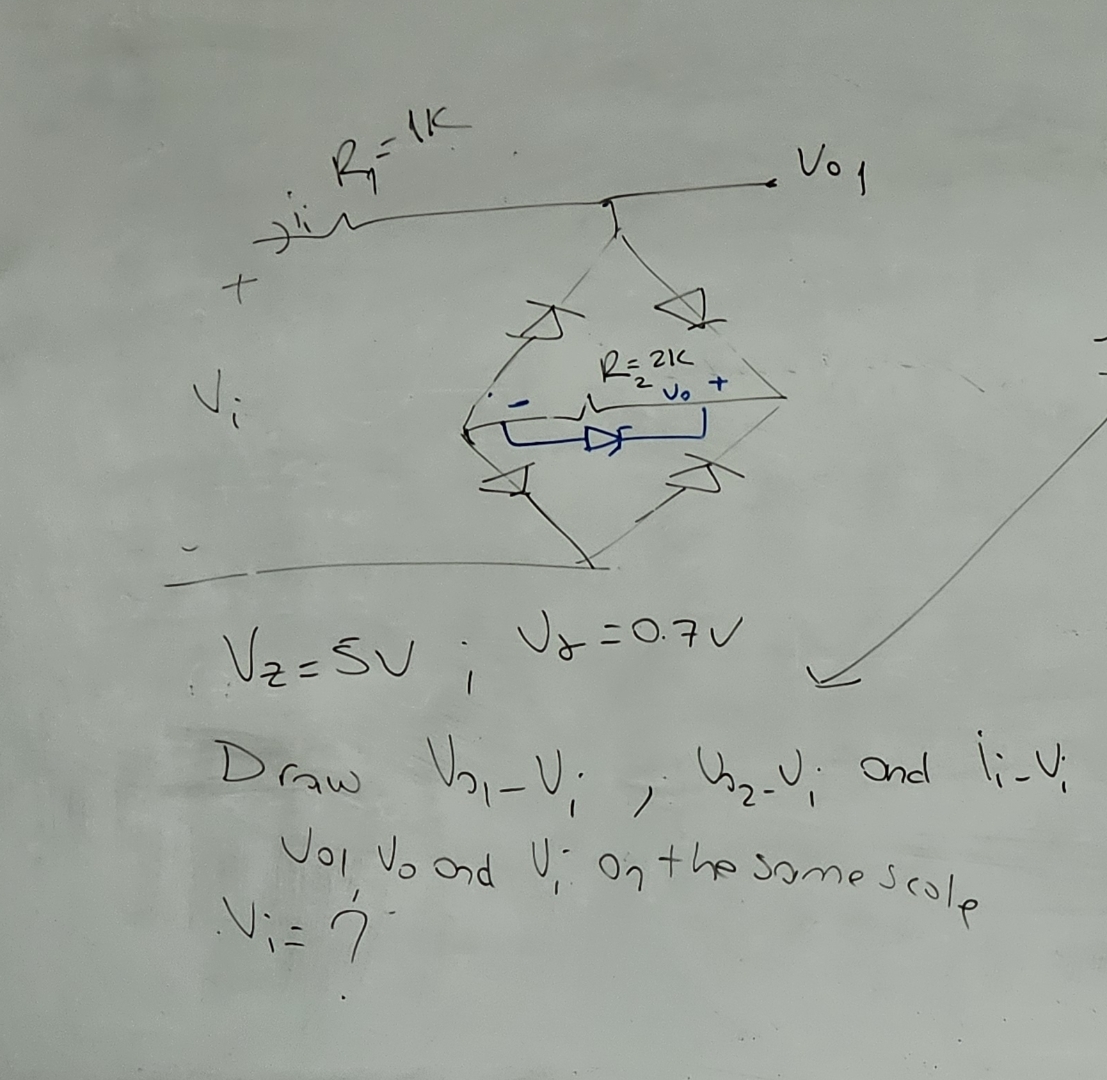 R₁=1K
Vo1
ii
+
R₂=2K
- Vo +
Vi
-
Vz=5V ; Vγ=0.7V
Draw Vo1-Vi , Vo2-Vi and ii-Vi
Vo1, Vo and Vi on the same scale
Vi=?